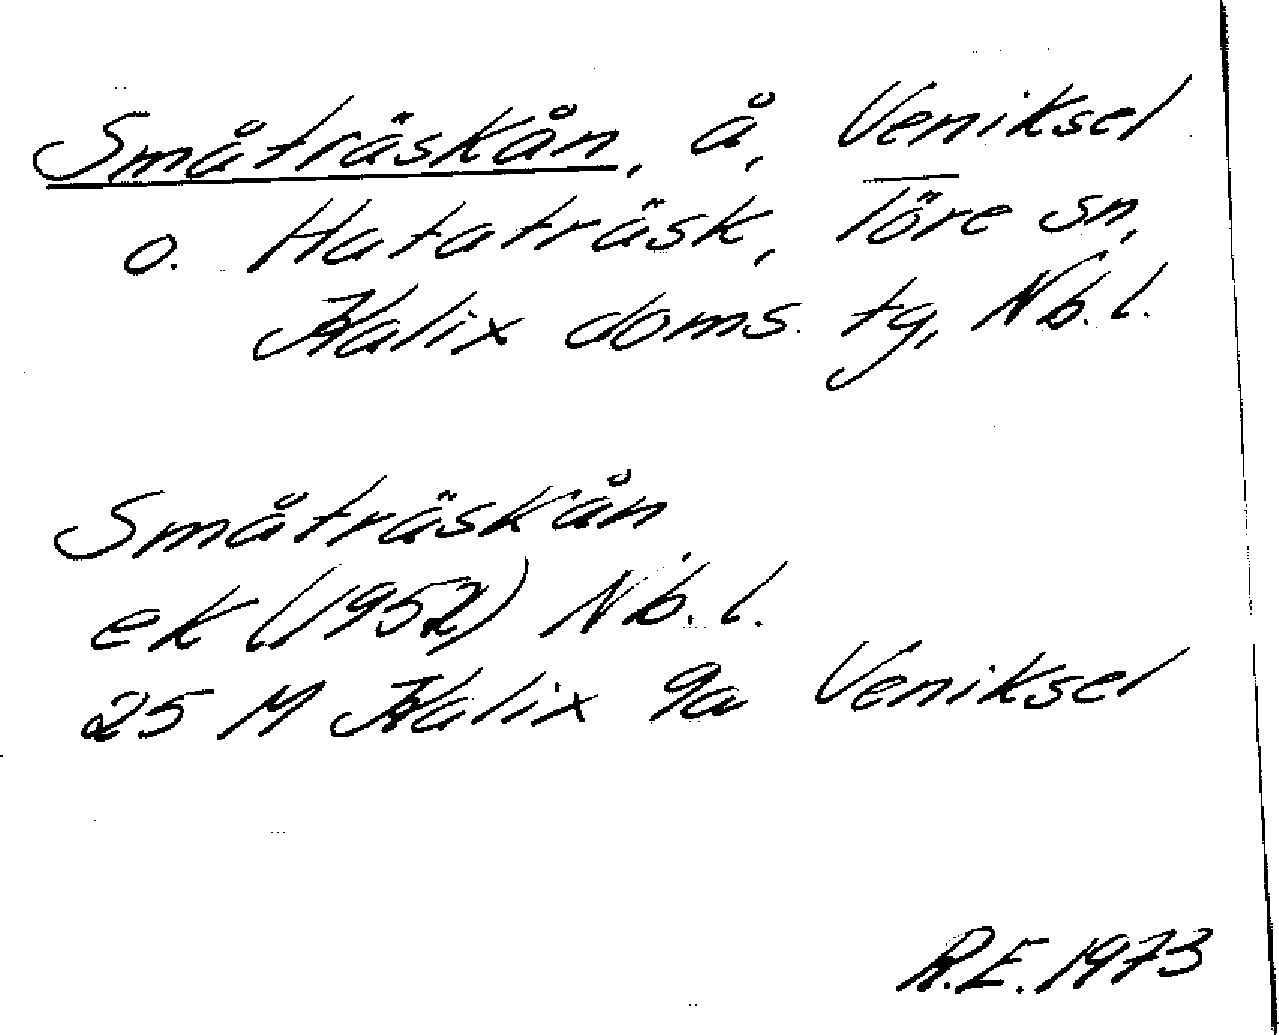 Småträskån, å, Veniksel
o. Hataträsk, Töre sn,
Kalix doms. tg, Nb.l.
Småträskån
ek (1952) Nb.l.
25 M Kalix 9a Veniksel
R.E. 1973